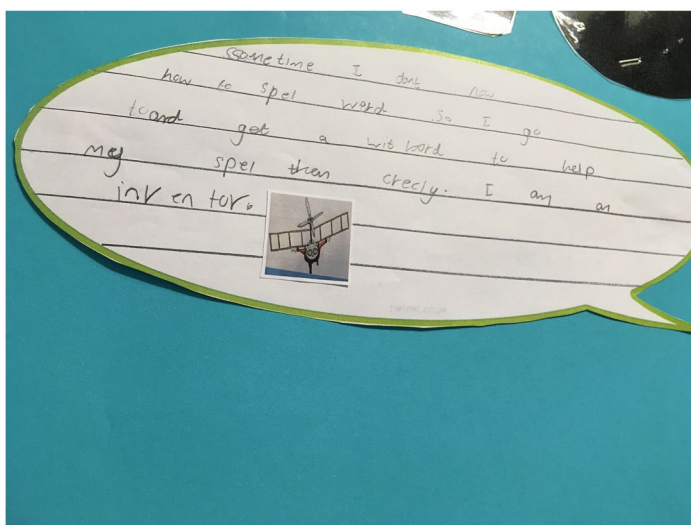 sometime I dont now
how to spel word so I go
to and get a wit bord to help
mey spel them crecly. I am an
inventor.
twinkl.co.uk